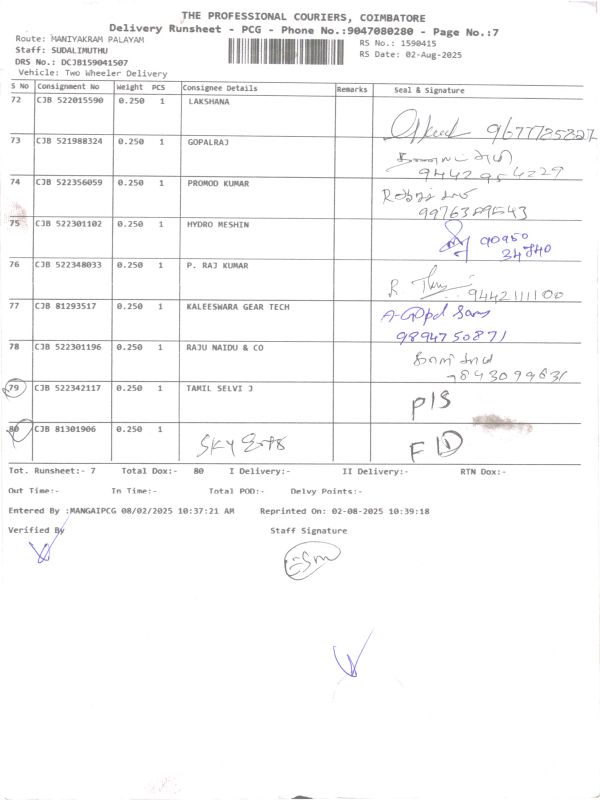 THE PROFESSIONAL COURIERS, COIMBATORE
Delivery Runsheet - PCG - Phone No.:9047080280 - Page No.:7
Route: MANIYAKRAM PALAYAM
Staff: SUDALIMUTHU
DRS No.: DCJB159041507
Vehicle: Two Wheeler Delivery
RS No.: 1590415
RS Date: 02-Aug-2025
S No Consignment No Weight PCS Consignee Details Remarks Seal & Signature
72 CJB 522015590 0.250 1 LAKSHANA
9677785827
73 CJB 521988324 0.250 1 GOPALRAJ
9442954229
74 CJB 522356059 0.250 1 PROMOD KUMAR
9976389543
75 CJB 522301102 0.250 1 HYDRO MESHIN 90950
34840
76 CJB 522348033 0.250 1 P. RAJ KUMAR
R 9442111100
77 CJB 81293517 0.250 1 KALEESWARA GEAR TECH A-Gopal Samy
9894750871
78 CJB 522301196 0.250 1 RAJU NAIDU & CO
9843099631
79 CJB 522342117 0.250 1 TAMIL SELVI J P/S
80 CJB 81301906 0.250 1 SKY F/D
Tot. Runsheet:- 7 Total Dox:- 80 I Delivery:- II Delivery:- RTN Dox:-
Out Time:- In Time:- Total POD:- Delvy Points:-
Entered By :MANGAIPCG 08/02/2025 10:37:21 AM Reprinted On: 02-08-2025 10:39:18
Verified By Staff Signature